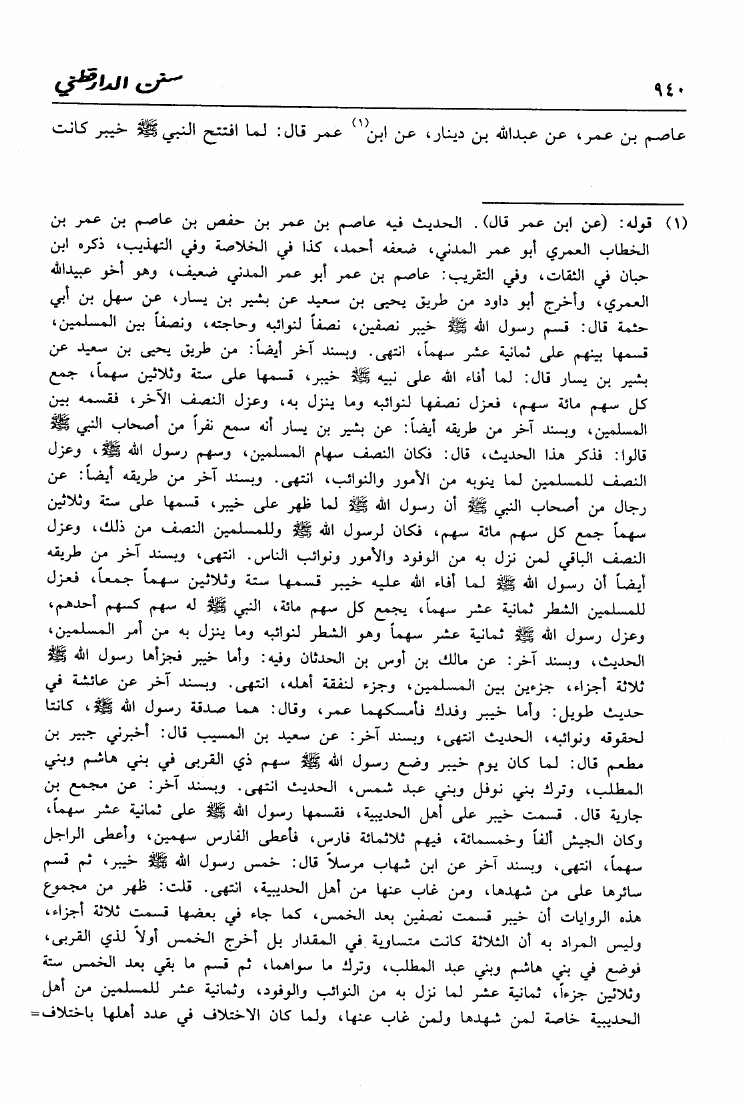 ٩٤٠
سنن الدارقطني
عاصم بن عمر، عن عبدالله بن دينار، عن ابن(١) عمر قال: لما افتتح النبي ﷺ خيبر كانت
(١) قوله: (عن ابن عمر قال). الحديث فيه عاصم بن عمر بن حفص بن عاصم بن عمر بن
الخطاب العمري أبو عمر المدني، ضعفه أحمد، كذا في الخلاصة وفي التهذيب، ذكره ابن
حبان في الثقات، وفي التقريب: عاصم بن عمر أبو عمر المدني ضعيف، وهو أخو عبيدالله
العمري، وأخرج أبو داود من طريق يحيى بن سعيد عن بشير بن يسار، عن سهل بن أبي
حثمة قال: قسم رسول الله ﷺ خيبر نصفين، نصفاً لنوائبه وحاجته، ونصفاً بين المسلمين،
قسمها بينهم على ثمانية عشر سهماً، انتهى. وبسند آخر أيضاً: من طريق يحيى بن سعيد عن
بشير بن يسار قال: لما أفاء الله على نبيه ﷺ خيبر، قسمها على ستة وثلاثين سهماً، جمع
كل سهم مائة سهم، فعزل نصفها لنوائبه وما ينزل به، وعزل النصف الآخر، فقسمه بين
المسلمين، وبسند آخر من طريقه أيضاً: عن بشير بن يسار أنه سمع نفراً من أصحاب النبي ﷺ
قالوا: فذكر هذا الحديث، قال: فكان النصف سهام المسلمين، وسهم رسول الله ﷺ، وعزل
النصف للمسلمين لما ينوبه من الأمور والنوائب، انتهى. وبسند آخر من طريقه أيضاً: عن
رجال من أصحاب النبي ﷺ أن رسول الله ﷺ لما ظهر على خيبر، قسمها على ستة وثلاثين
سهماً جمع كل سهم مائة سهم، فكان لرسول الله ﷺ وللمسلمين النصف من ذلك، وعزل
النصف الباقي لمن نزل به من الوفود والأمور ونوائب الناس. انتهى، وبسند آخر من طريقه
أيضاً أن رسول الله ﷺ لما أفاء الله عليه خيبر قسمها ستة وثلاثين سهماً جمعاً، فعزل
للمسلمين الشطر ثمانية عشر سهماً، يجمع كل سهم مائة، النبي ﷺ له سهم كسهم أحدهم،
وعزل رسول الله ﷺ ثمانية عشر سهماً وهو الشطر لنوائبه وما ينزل به من أمر المسلمين،
الحديث، وبسند آخر: عن مالك بن أوس بن الحدثان وفيه: وأما خيبر فجزأها رسول الله ﷺ
ثلاثة أجزاء، جزءين بين المسلمين، وجزء لنفقة أهله، انتهى. وبسند آخر عن عائشة في
حديث طويل: وأما خيبر وفدك فأمسكهما عمر، وقال: هما صدقة رسول الله ﷺ، كانتا
لحقوقه ونوائبه، الحديث انتهى، وبسند آخر: عن سعيد بن المسيب قال: أخبرني جبير بن
مطعم قال: لما كان يوم خيبر وضع رسول الله ﷺ سهم ذي القربى في بني هاشم وبني
المطلب، وترك بني نوفل وبني عبد شمس، الحديث انتهى. وبسند آخر: عن مجمع بن
جارية قال. قسمت خيبر على أهل الحديبية، فقسمها رسول الله ﷺ على ثمانية عشر سهماً،
وكان الجيش ألفاً وخمسمائة، فيهم ثلاثمائة فارس، فأعطى الفارس سهمين، وأعطى الراجل
سهماً، انتهى، وبسند آخر عن ابن شهاب مرسلاً قال: خمس رسول الله ﷺ خيبر، ثم قسم
سائرها على من شهدها، ومن غاب عنها من أهل الحديبية، انتهى. قلت: ظهر من مجموع
هذه الروايات أن خيبر قسمت نصفين بعد الخمس، كما جاء في بعضها قسمت ثلاثة أجزاء،
وليس المراد به أن الثلاثة كانت متساوية في المقدار بل أخرج الخمس أولاً لذي القربى،
فوضع في بني هاشم وبني عبد المطلب، وترك ما سواهما، ثم قسم ما بقي بعد الخمس ستة
وثلاثين جزءاً، ثمانية عشر لما نزل به من النوائب والوفود، وثمانية عشر للمسلمين من أهل
الحديبية خاصة لمن شهدها ولمن غاب عنها، ولما كان الاختلاف في عدد أهلها باختلاف=